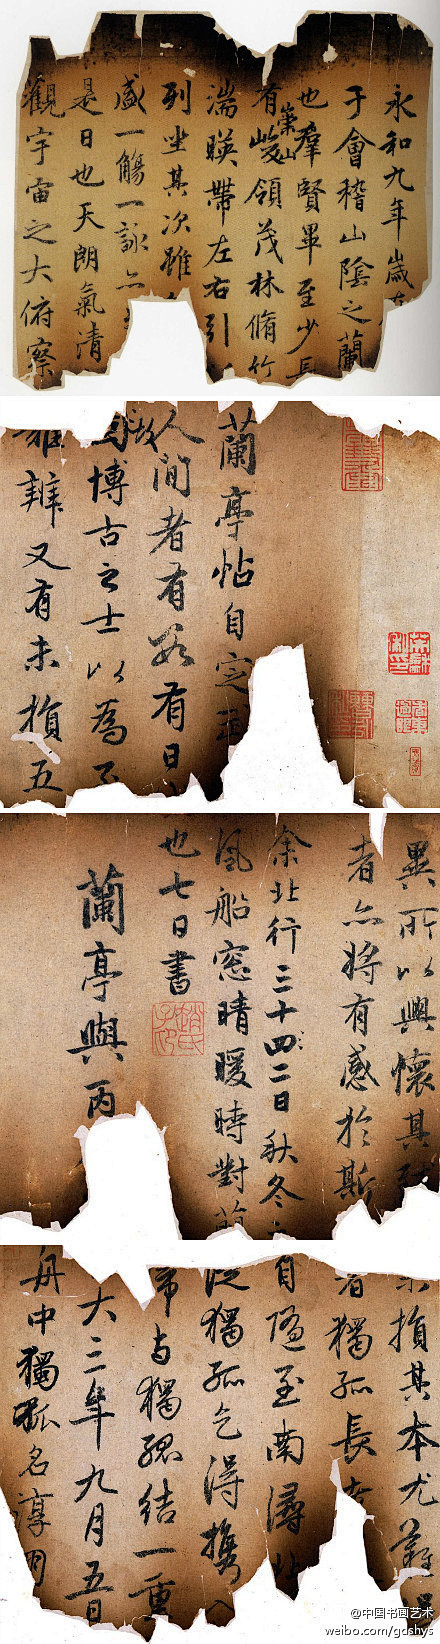 永和九年歲在
于會稽山陰之蘭
也羣賢畢至少長
有崇山峻領茂林脩竹
湍暎帶左右引
列坐其次雖
盛一觴一詠亦
是日也天朗氣清
觀宇宙之大俯察
蘭亭帖自定武
人間者有數有日
博古之士以為
難辨又有未損五
異所以興懷其致
者亦將有感於斯
余北行三十二日秋冬
風船窓晴暖時對
也七日書
蘭亭與丙
損其本尤難
者獨孤長
自隘至南潯北
從獨孤乞得攜入
与獨孤結一重
大三年九月五日
舟中獨孤名淳朋
@中国书画艺术
weibo.com/gdshys